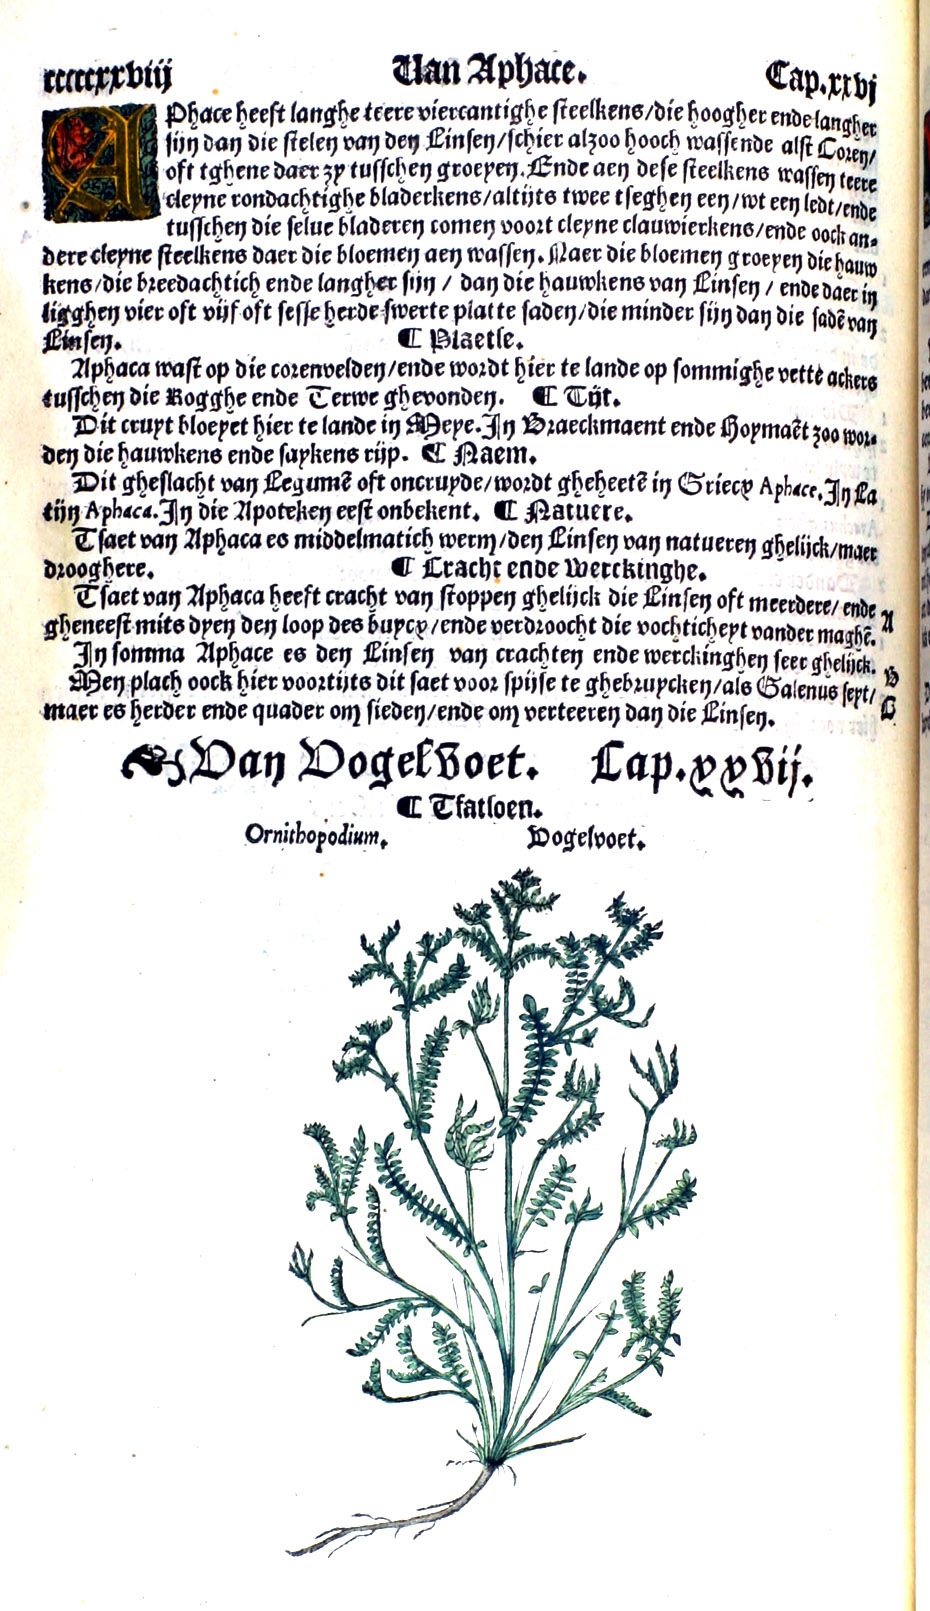 cccccxxviij Van Aphace. Cap.xxvj
APhace heeft langhe teere viercantighe steelkens/die hoogher ende langher
sijn dan die stelen van den Linsen/schier alzoo hooch wassende alst Coren/
oft tghene daer zy tusschen groeyen. Ende aen dese steelkens wassen teere
cleyne rondachtighe bladerkens/altijts twee tseghen een/wt een ledt/ende
tusschen die selue bladeren comen voort cleyne clauwierkens/ende oock an-
dere cleyne steelkens daer die bloemen aen wassen. Naer die bloemen groeyen die hauw
kens/die breedachtich ende langher sijn / dan die hauwkens van Linsen / ende daer in
ligghen vier oft vijf oft sesse herde swerte platte saden/die minder sijn dan die sadē van
Linsen. ¶ Plaetse.
Aphaca wast op die corenvelden/ende wordt hier te lande op sommighe vette ackers
tusschen die Rogghe ende Terwe ghevonden. ¶ Tijt.
Dit cruyt bloeyet hier te lande in Meye. In Braeckmaent ende Hoymaēt zoo wor-
den die hauwkens ende saykens rijp. ¶ Naem.
Dit gheslacht van Legumē oft oncruyde/wordt gheheetē in Griecx Aphace. In La
tijn Aphaca. In die Apoteken eest onbekent. ¶ Natuere.
Tsaet van Aphaca es middelmatich werm/den Linsen van natueren ghelijck/maer
drooghere. ¶ Cracht ende Werckinghe.
Tsaet van Aphaca heeft cracht van stoppen ghelijck die Linsen oft meerdere/ende A
gheneest mits dyen den loop des buycx/ende verdroocht die vochticheyt vander maghē.
In somma Aphace es den Linsen van crachten ende werckinghen seer ghelijck. B
Men plach oock hier voortijts dit saet voor spijse te ghebruycken/als Galenus seyt/ C
maer es herder ende quader om sieden/ende om verteeren dan die Linsen.
Van Vogelvoet. Cap.xxvij.
¶ Tfatsoen.
Ornithopodium. Vogelvoet.